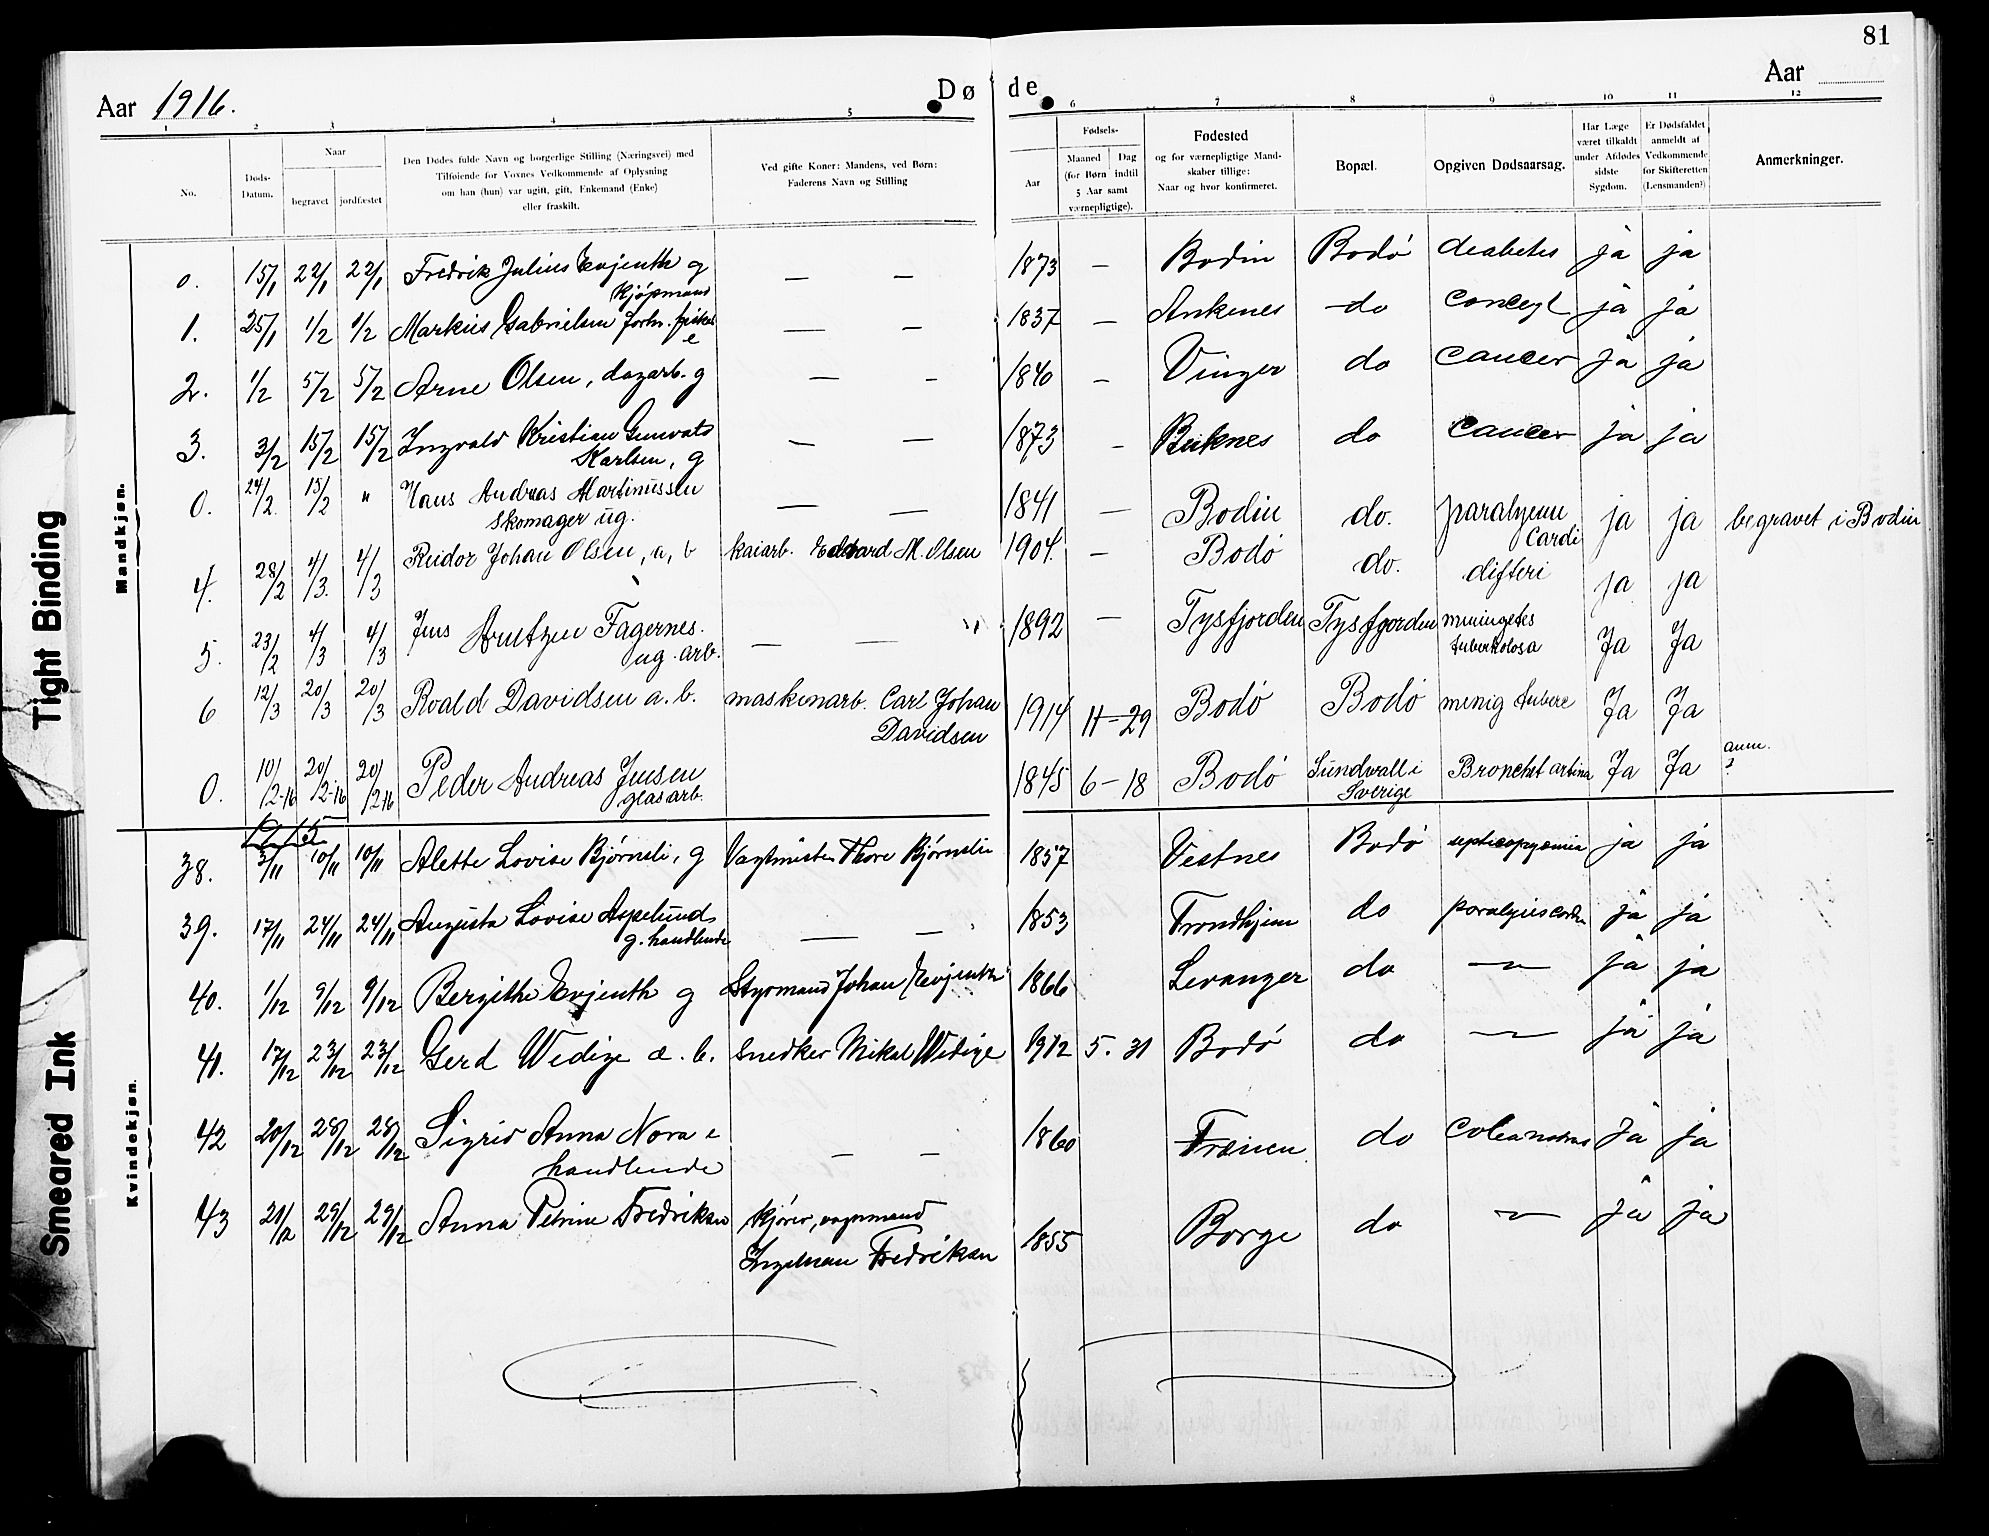 81
Aar 1916.
Dø de
Aar
1 2 3 4 5 6 7 8 9 10 11 12
No.
Døds-Datum.
Naar
begravet jordfæstet
Den Dødes fulde Navn og borgerlige Stilling (Næringsvei) med
Tilføiende for Voxnes Vedkommende af Oplysning
om han (hun) var ugift, gift, Enkemand (Enke)
eller fraskilt.
Ved gifte Koner: Mandens, ved Børn:
Faderens Navn og Stilling
Fødsels-
Aar
Maaned Dag
(for Børn indtil
5 Aar samt
værnepligtige).
Fødested
og for værnepligtige Mand-
skaber tillige:
Naar og hvor konfirmeret.
Bopæl.
Opgiven Dødsaarsag.
Har Læge
været tilkaldt
under Afdødes
sidste
Sygdom.
Er Dødsfaldet
anmeldt af
Vedkommende
for Skifteretten
(Lensmanden?)
Anmerkninger.
Mandkjøn.
0. 15/1 22/1 22/1 Fredrik Julius Evjenth g — — 1873 — Bodin Bodö deabetes ja ja
kjøpmand
1. 25/1 1/2 1/2 Markus Gabrielsen forh. — — 1837 — Ankenes do ja ja
e
2. 1/2 5/2 5/2 Arne Olsen, dagarb. g — - 1840 — Vinger do cancer ja ja
3. 3/2 15/2 15/2 Ingvald Kristian Gunvald — — 1873 - Buknes do cancer ja ja
Karlsen, g
0. 24/2 15/2 " Hans Andreas Martinussen — — 1841 — Bodin do. ja ja begravet i Bodin
Skomager ug. Cardi
4. 28/2 4/3. 4/3 Reidor Johan Olsen, a, b kaiarb. Edvard M. Olsen 1904. — Bodö do. difteri ja ja
5. 23/2 4/3 4/3 Jens Arntzen Fagernes. — — 1892 — Tysfjorden Tysfjorden meningetes
ug. arb. tuberkolosa Ja Ja
6 12/3 20/3 20/3 Roald Davidsen a. b. maskinarb. Carl Johan 1914 11-29 Bodö Bodö menig tuberc Ja Ja
Davidsen
0. 10/12-16 20/12-16 20/12-16 Peder Andreas Jensen 1845 6-18 Bodö Sundvall i Bronchit Ja Ja anm.
glasarb. Sverige ?
Kvindekjøn.
1915
38. 3/11 10/11 10/11 Alette Lovise Bjørnsli, g Vagtmester Thore Bjørnslie 1857 Vestnes Bodö ja ja
39. 17/11 24/11 24/11 Augusta Lovise Aspelund — — 1853 Trondhjem do ja ja
g. handlende
40. 1/12 9/12 9/12 Bergithe Evjenth g Styrmand Johan Evjenth 1866 Levanger do — ja ja
41. 17/12 23/12 23/12 Gerd Wedige a. b. Snedker Mikal Wedige 1912 5. 31 Bodö do — ja ja
42 20/12 28/12 28/12 Sigrid Anna Nora e — — 1860 Frænen do ja ja
handlende
43 21/12 29/12 29/12 Anna Petrine Fredriksen kjører, vognmand 1855 Borge do — ja ja
Ingelman Fredriksen
Tight Binding
Smeared Ink